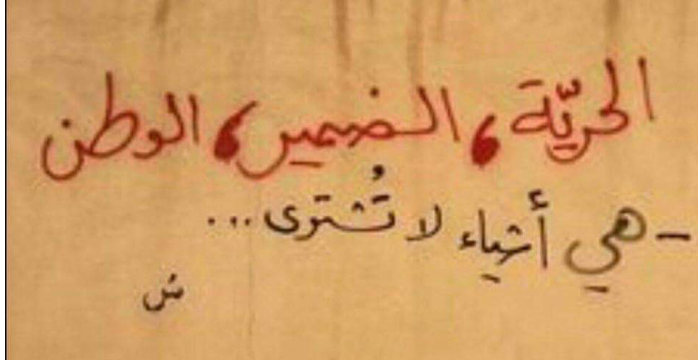 الحريّة، الضمير، الوطن
- هي أشياء لا تُشترى...
ش